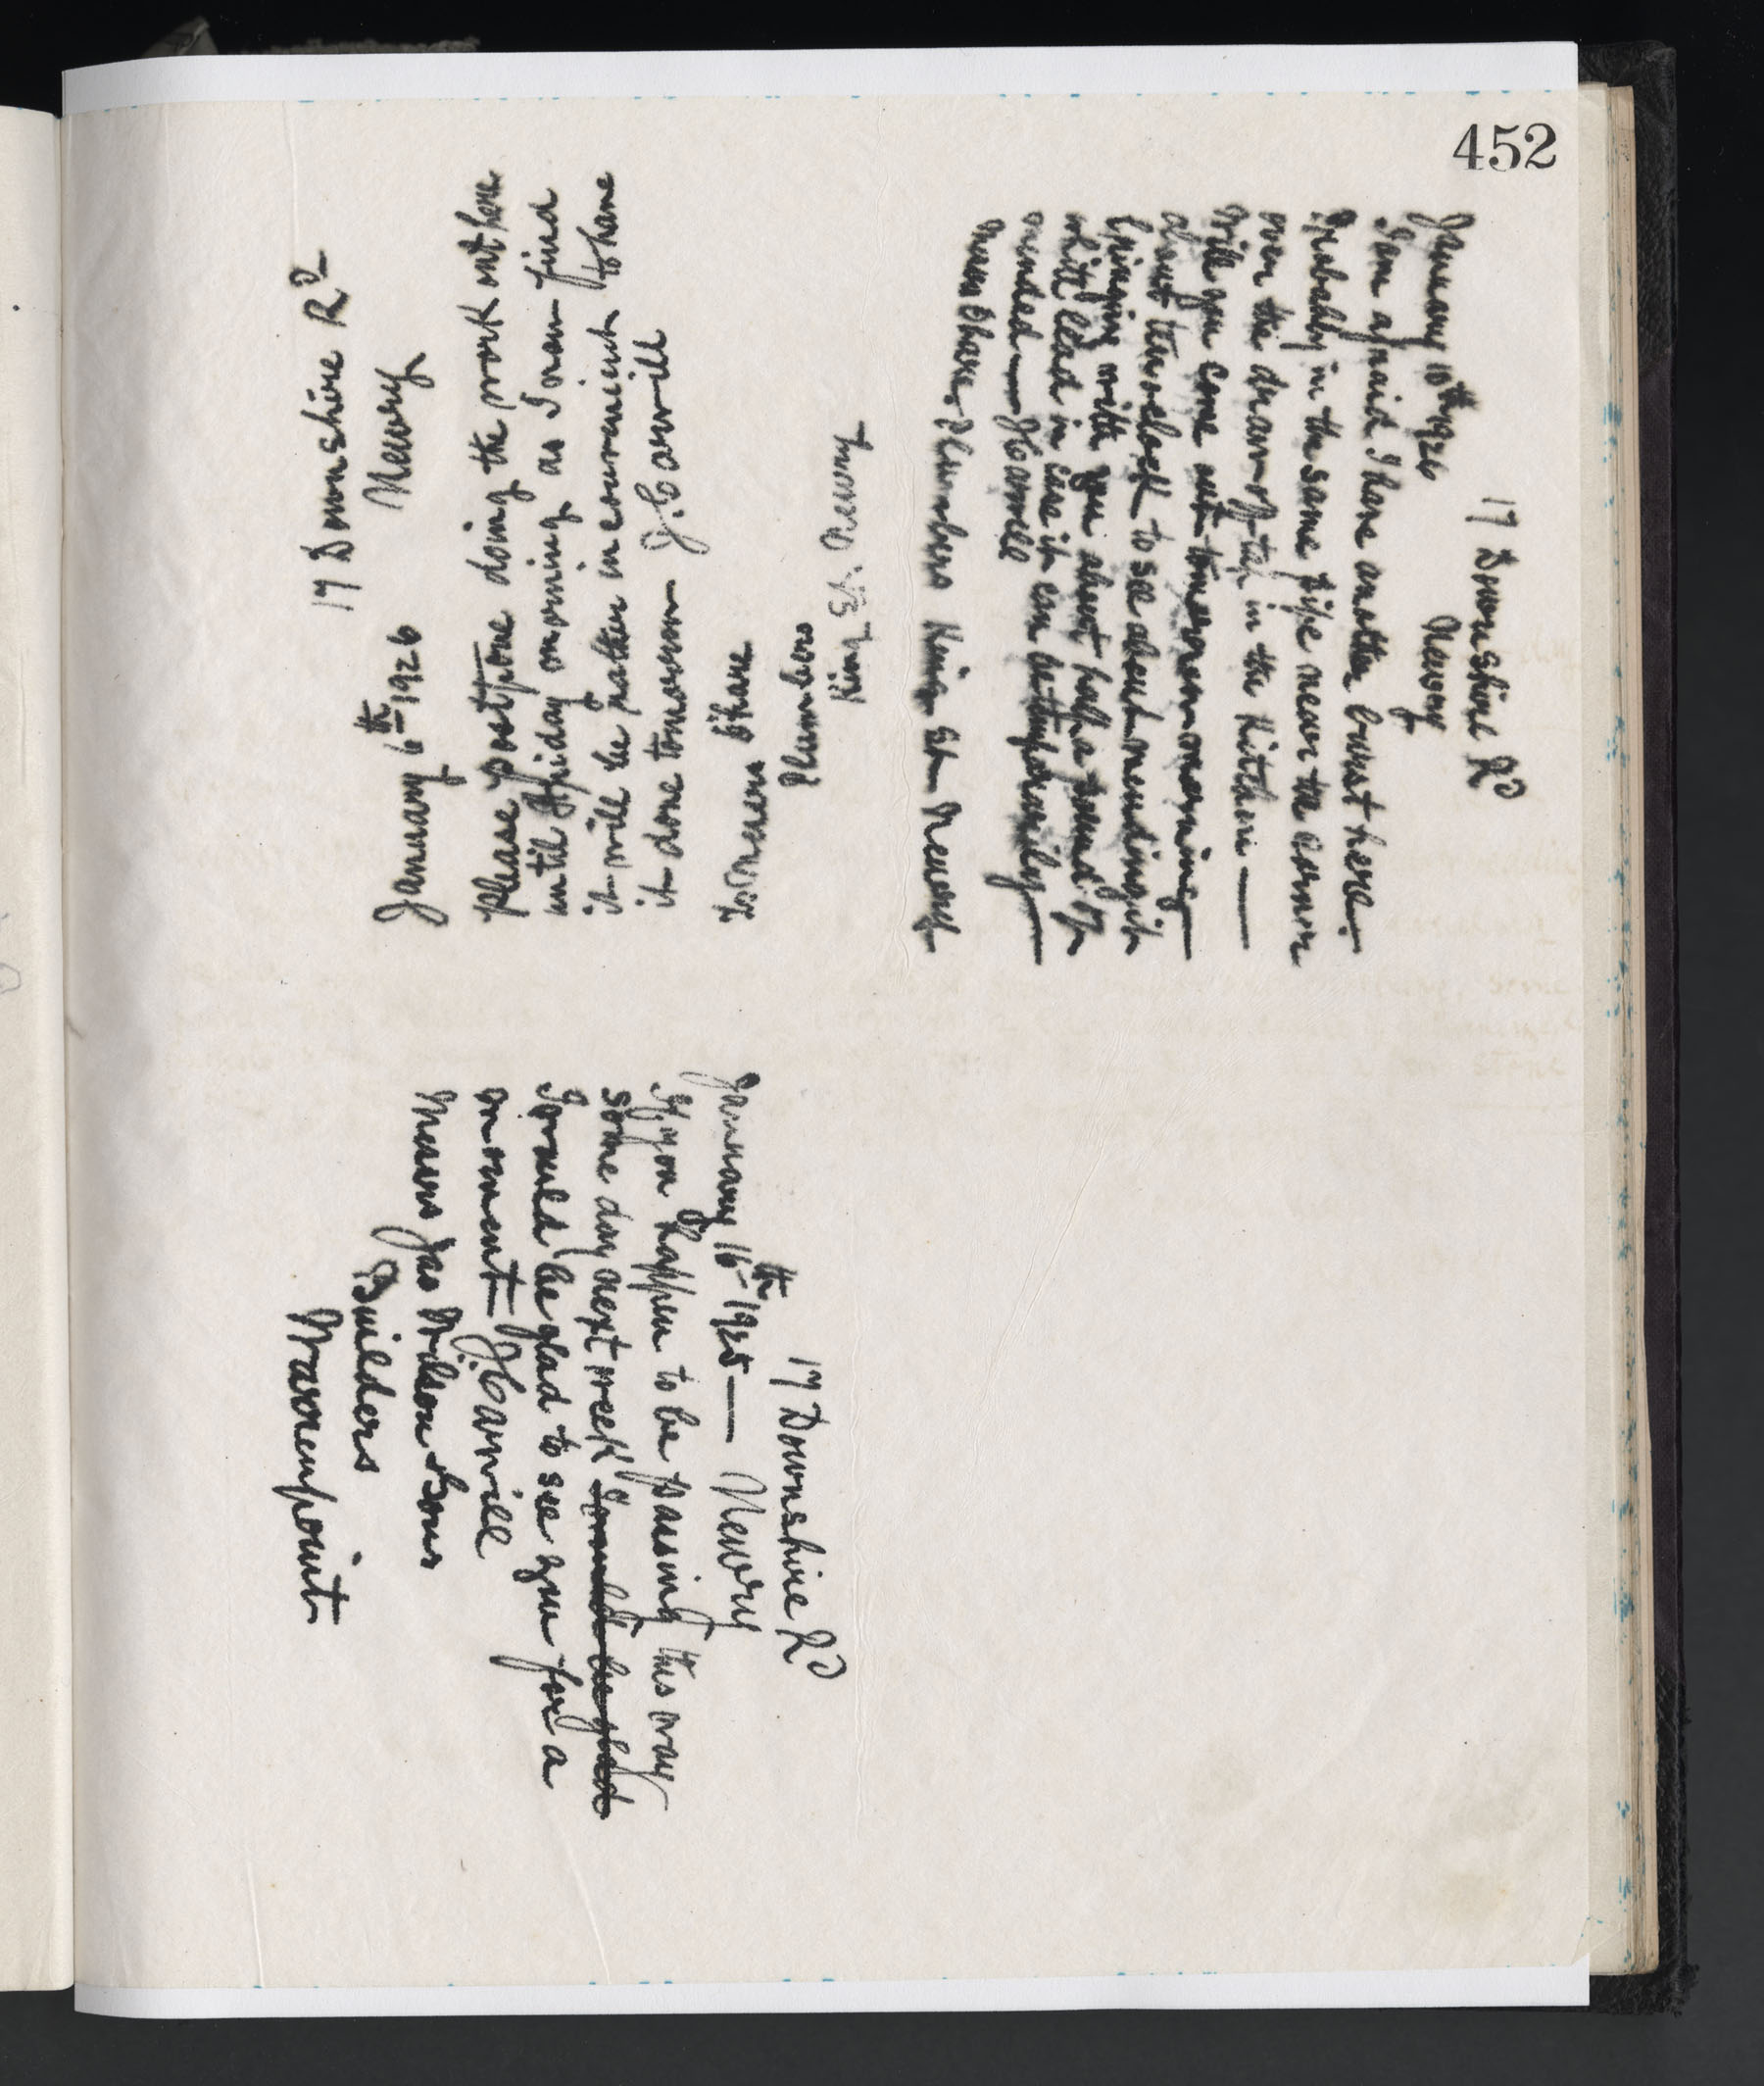 452
17 Downshire Rd
Newry
January 6th 1926
Please postpone doing the work out here
until Friday morning as I now find
it will be rather inconvenient to have
it done tomorrow J. Carvill
To Messrs O'Hare
Plumbers
King St. Newry
17 Downshire Rd
Newry
January 10th 1926
I am afraid I have another burst here -
Probably in the same pipe near the corner
over the draw off tap in the Kitchen —
Will you come out tomorrow morning
about ten o'clock to see about mending it
bringing with you about half a pound of
white lead in case it can be temporarily
mended — J Carvill
Messrs O'hare Plumbers King St Newry
17 Downshire Rd
January 16th 1925 — Newry
If you happen to be passing this way
some day next week I would be glad
I would be glad to see you for a
moment J. Carvill
Messrs Jas Wilson & Sons
Builders
Warrenpoint